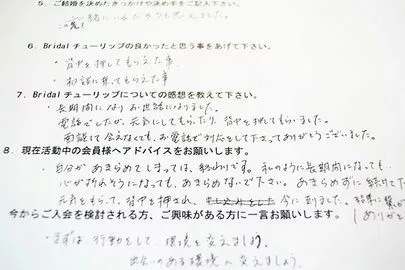 5. ご結婚を決めたきっかけや決め手をご記入下さい。
この先一緒にいるだろうと思えました。
6. Bridal チューリップの良かったと思う事をあげて下さい。
・背中を押してもらえた事
・相談に乗ってもらえた事
7. Bridal チューリップについての感想を教えて下さい。
・長期間になりお世話になりました。
電話でしたが、元気にしてもらったり、背中を押してもらいました。
面談して会えなくても、お電話で対応をして下さってありがとうございました。
8. 現在活動中の会員様へアドバイスをお願いします。
・自分があきらめてしまっては、終わりです。私のように長期間になっても…
心が折れそうになっても、あきらめないで下さい。あきらめずに続けて
元気をもらって、背中を押され、今に到りました。結果に繋が
今からご入会を検討される方、ご興味がある方に一言お願いします。
ありがと
・まずは行動をして、環境を変えましょう。
出会いのある環境に変えましょう。